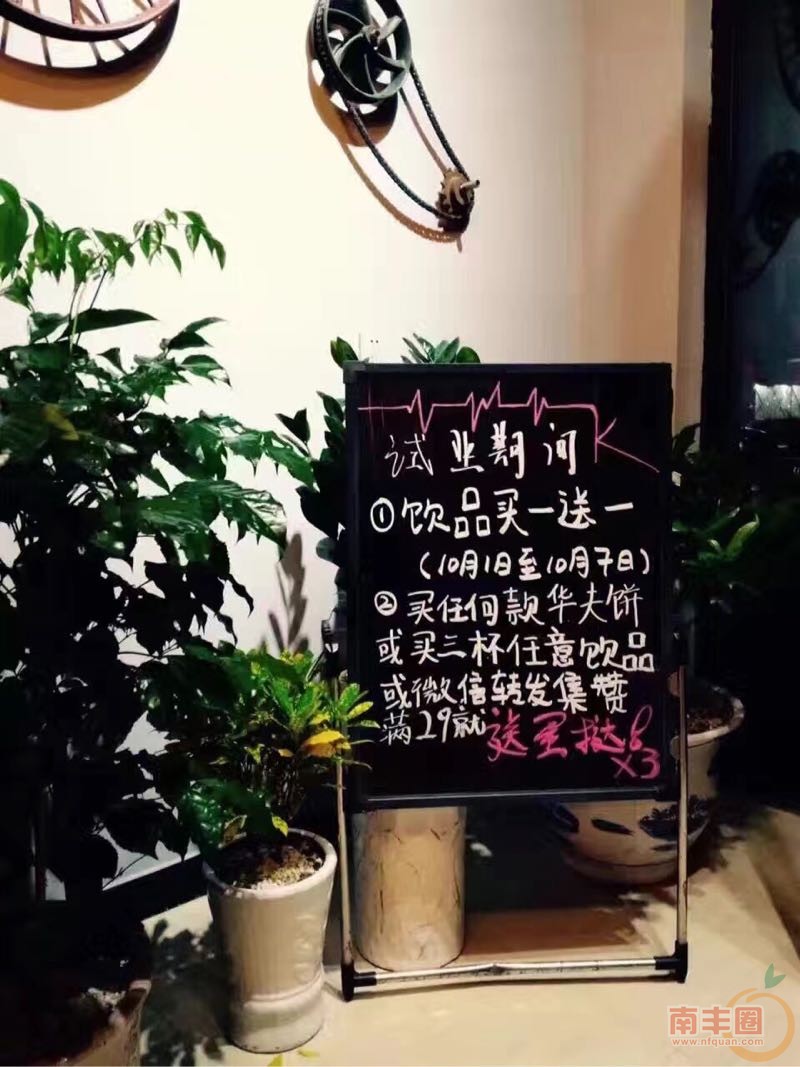 试业期间
①饮品买一送一
(10月1日至10月7日)
②买任何款华夫饼
或买三杯任意饮品
或微信转发集赞
满29就送蛋挞8
X3
南丰圈
www.nfquan.com